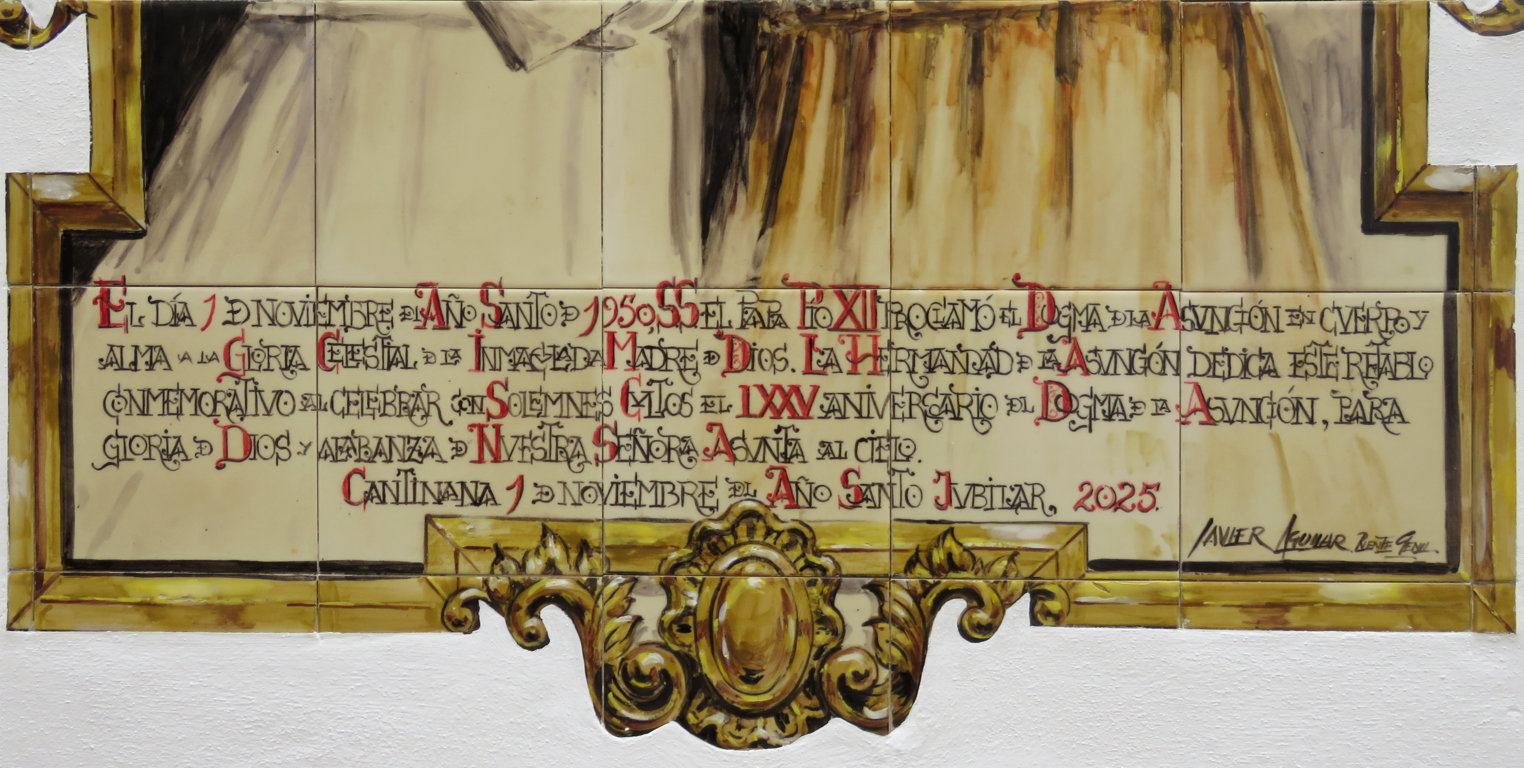 EL DÍA 1 DE NOVIEMBRE DEL AÑO SANTO DE 1950, SS EL PAPA PIO XII PROCLAMÓ EL DOGMA DE LA ASVNCIÓN EN CVERPO Y
ALMA A LA GLORIA CELESTIAL DE LA INMACVLADA MADRE DE DIOS. LA HERMANDAD DE LA ASVNCIÓN DEDICA ESTE RETABLO
CONMEMORATIVO AL CELEBRAR CON SOLEMNES CVLTOS EL LXXV ANIVERSARIO DEL DOGMA DE LA ASVNCIÓN, PARA
GLORIA DE DIOS Y ALABANZA DE NVESTRA SEÑORA ASVNTA AL CIELO.
CANTILLANA 1 DE NOVIEMBRE DEL AÑO SANTO JVBILAR, 2025.
JAVIER AGUILAR PUENTE GENIL.